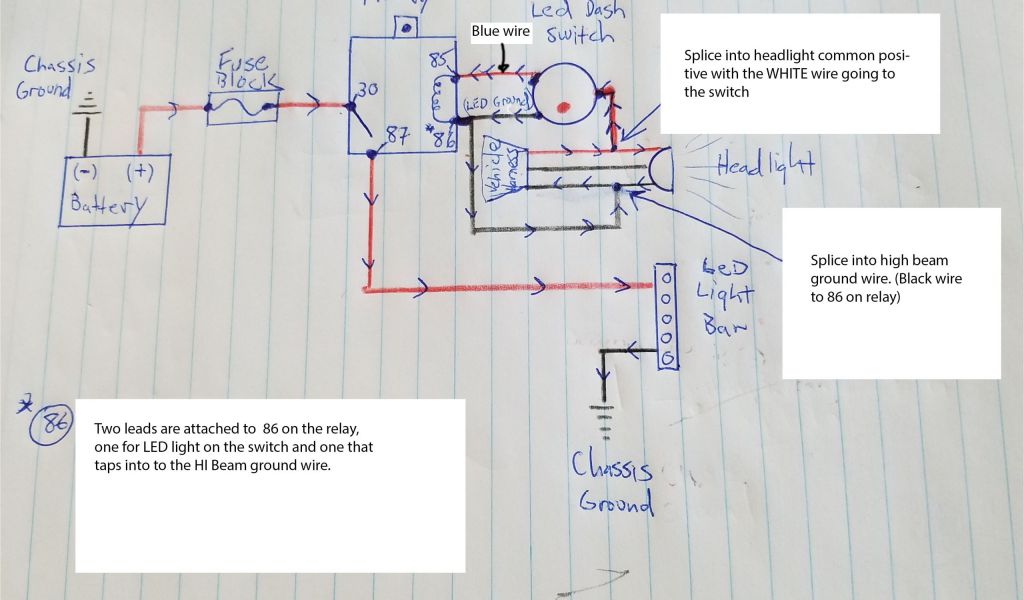 Led Dash
Switch
Blue wire
Splice into headlight common posi-
tive with the WHITE wire going to
the switch
Chassis
Ground
Fuse
Block
85
30
(LED Ground)
*86
87
Vehicle
Harness
Headlight
(-) (+)
Battery
Splice into high beam
ground wire. (Black wire
to 86 on relay)
LeD
Light
Bar
* 86
Two leads are attached to 86 on the relay,
one for LED light on the switch and one that
taps into to the HI Beam ground wire.
Chassis
Ground